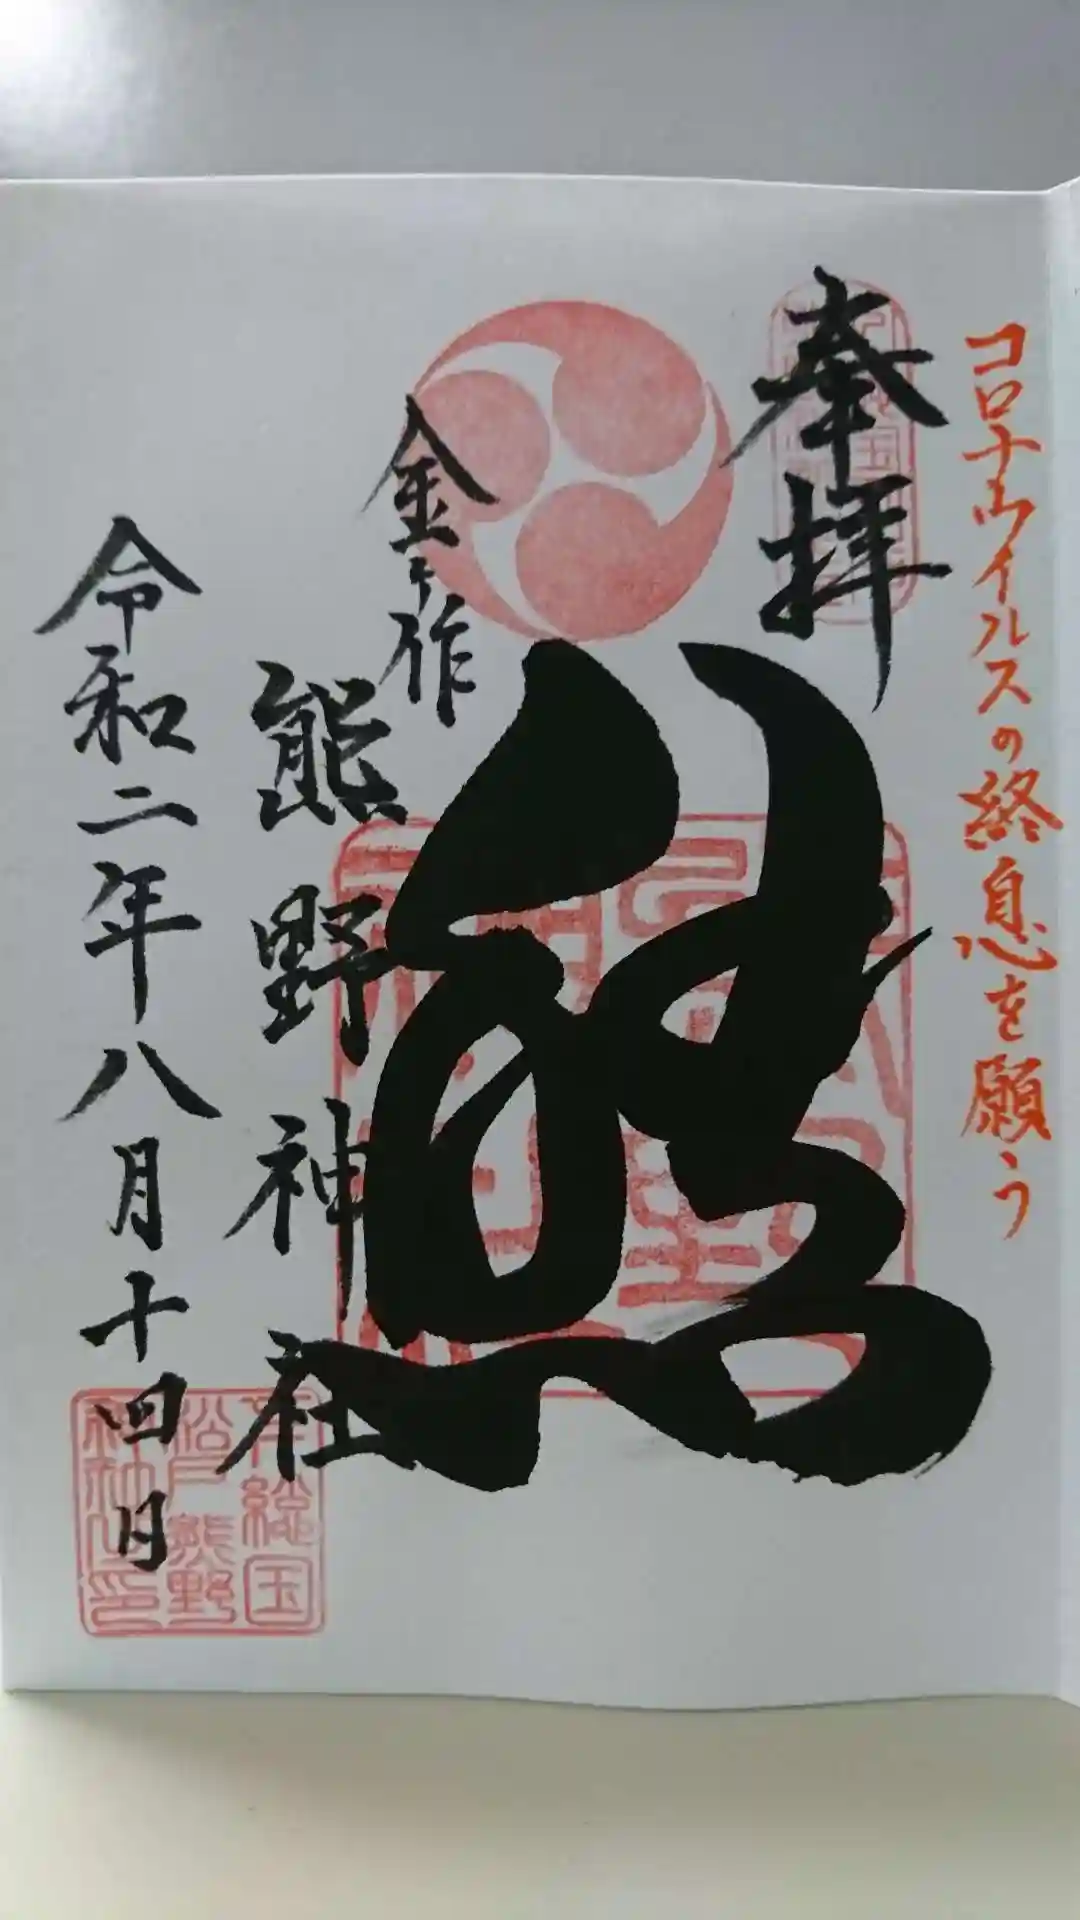 コロナウイルスの終息を願う
奉拝
熊
金ヶ作
熊野神社
令和二年八月十四日
下総国
松戸熊野
神社印